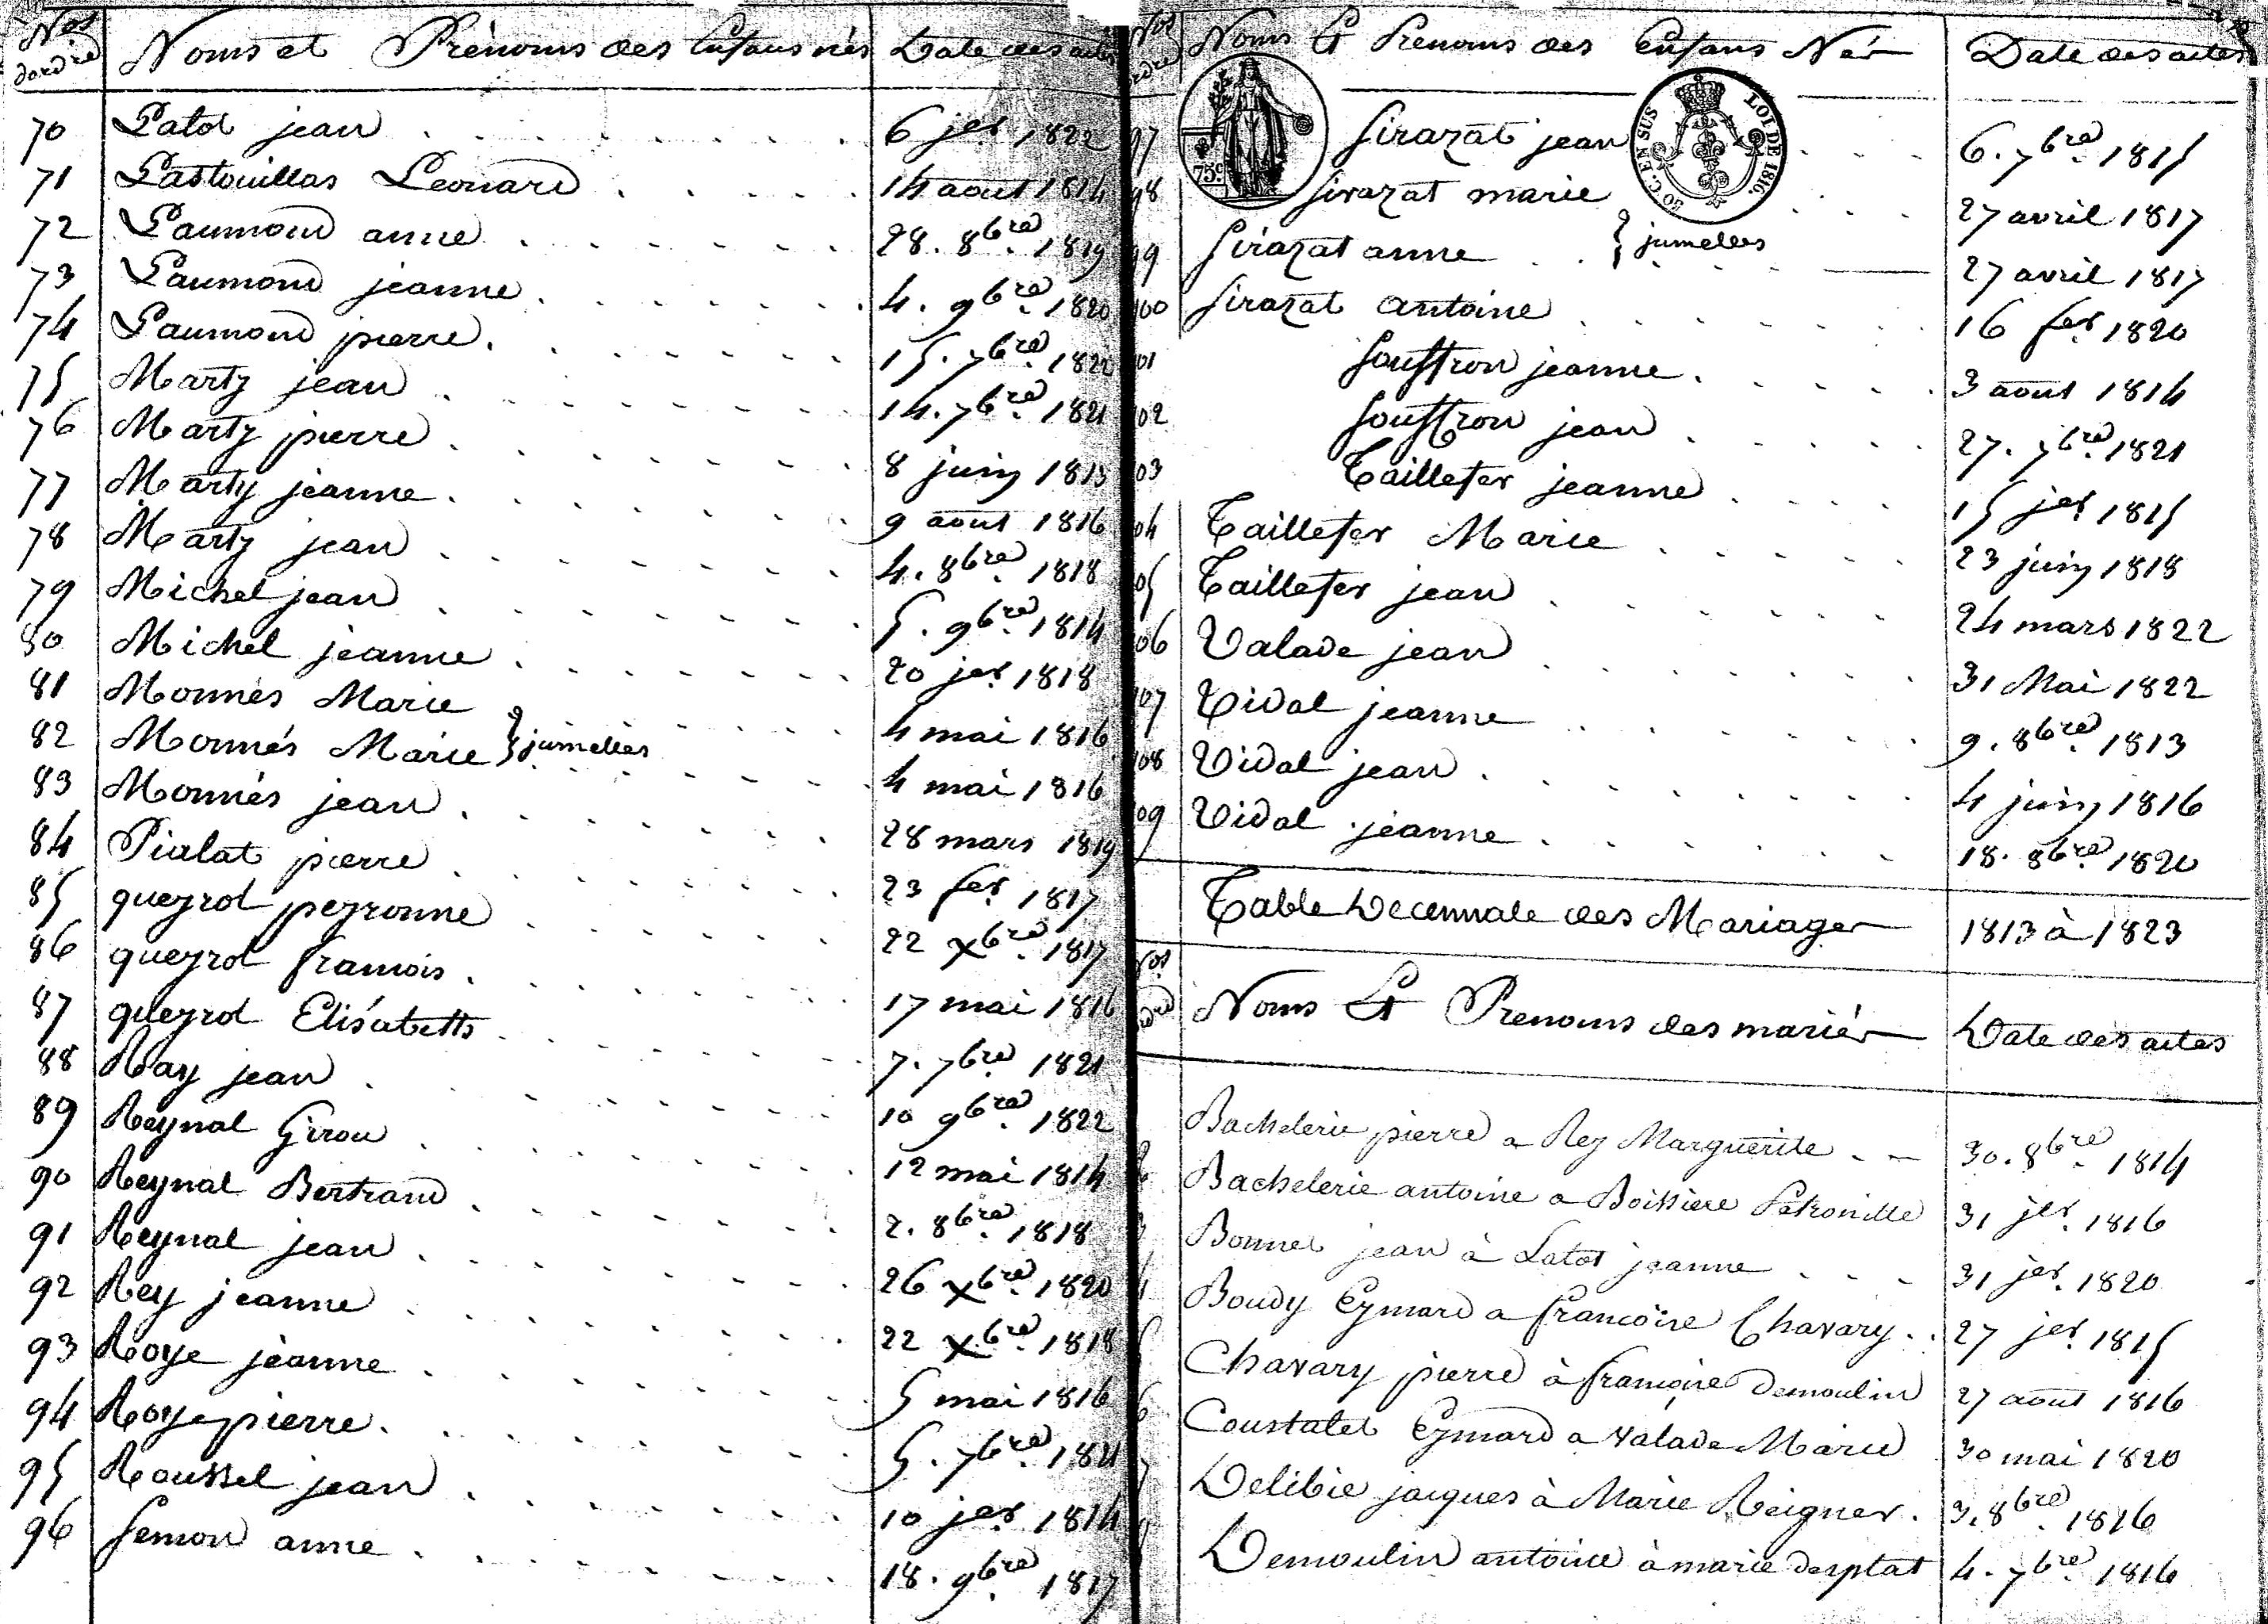 Nos dordre Noms et Prénoms des Enfans nés Date des actes
70 Latot jean 6 jer 1822
71 Lastouillas Leonard 14 aout 1814
72 Laumond anne 28. 8bre 1819
73 Laumond jeanne 4. 9bre 1820
74 Laumond pierre 15. 7bre 1822
75 Marty jean 14. 7bre 1821
76 Marty pierre 8 juin 1813
77 Marty jeanne 9 aout 1816
78 Marty jean 4. 8bre 1818
79 Michel jean 5. 9bre 1814
80 Michel jeanne 20 jer 1818
81 Monnés Marie 4 mai 1816
82 Monnés Marie jumelles 4 mai 1816
83 Monnés jean 28 mars 1819
84 Pialat pierre 23 fer 1817
85 queyrol peyronne 22 xbre 1817
86 queyrol francois 17 mai 1816
87 queyrol Elisabeth 7. 7bre 1821
88 Ray jean 10 9bre 1822
89 Reynal Girou 12 mai 1814
90 Reynal Bertrand 2. 8bre 1818
91 Reynal jean 26 xbre 1820
92 Rey jeanne 22 xbre 1818
93 Roye jeanne 5 mai 1816
94 Roye pierre 5. 7bre 1821
95 Roussel jean 10 jer 1814
96 Semon anne 18. 9bre 1817
Nos ordre Noms Et Prenoms des Enfans Nés Date des actes
75c
50 C. EN SUS LOI DE 1816.
97 Sirazat jean 6. 7bre 1815
98 Sirazat marie 27 avril 1817
99 Sirazat anne jumelles 27 avril 1817
100 Sirazat antoine 16 fer 1820
101 Souffron jeanne 3 aout 1814
102 Souffron jean 27. 7bre 1821
103 Taillefer jeanne 15 jer 1815
04 Taillefer Marie 23 juin 1818
05 Taillefer jean 24 mars 1822
06 Valade jean 31 Mai 1822
107 Vidal jeanne 9. 8bre 1813
108 Vidal jean 4 juin 1816
09 Vidal jeanne 18. 8bre 1820
Table Decennale des Mariages 1813 à 1823
Nos Noms Et Prenoms des mariés Date des actes
Bachelerie pierre a Rey Marguerite 30. 8bre 1814
Bachelerie antoine a Boissiere Petronille 31 jer 1816
3 Bonnet jean à Latot jeanne 31 jer 1820
4 Boudy Eymard a francoise Chavary 27 jer 1815
Chavary pierre à francoise Demoulin 27 aout 1816
6 Coustalet Eymard a Valade Marie 30 mai 1820
7 Delibie jacques à Marie Reigner 3. 8bre 1816
Demoulin antoine à marie desplat 4. 7bre 1816